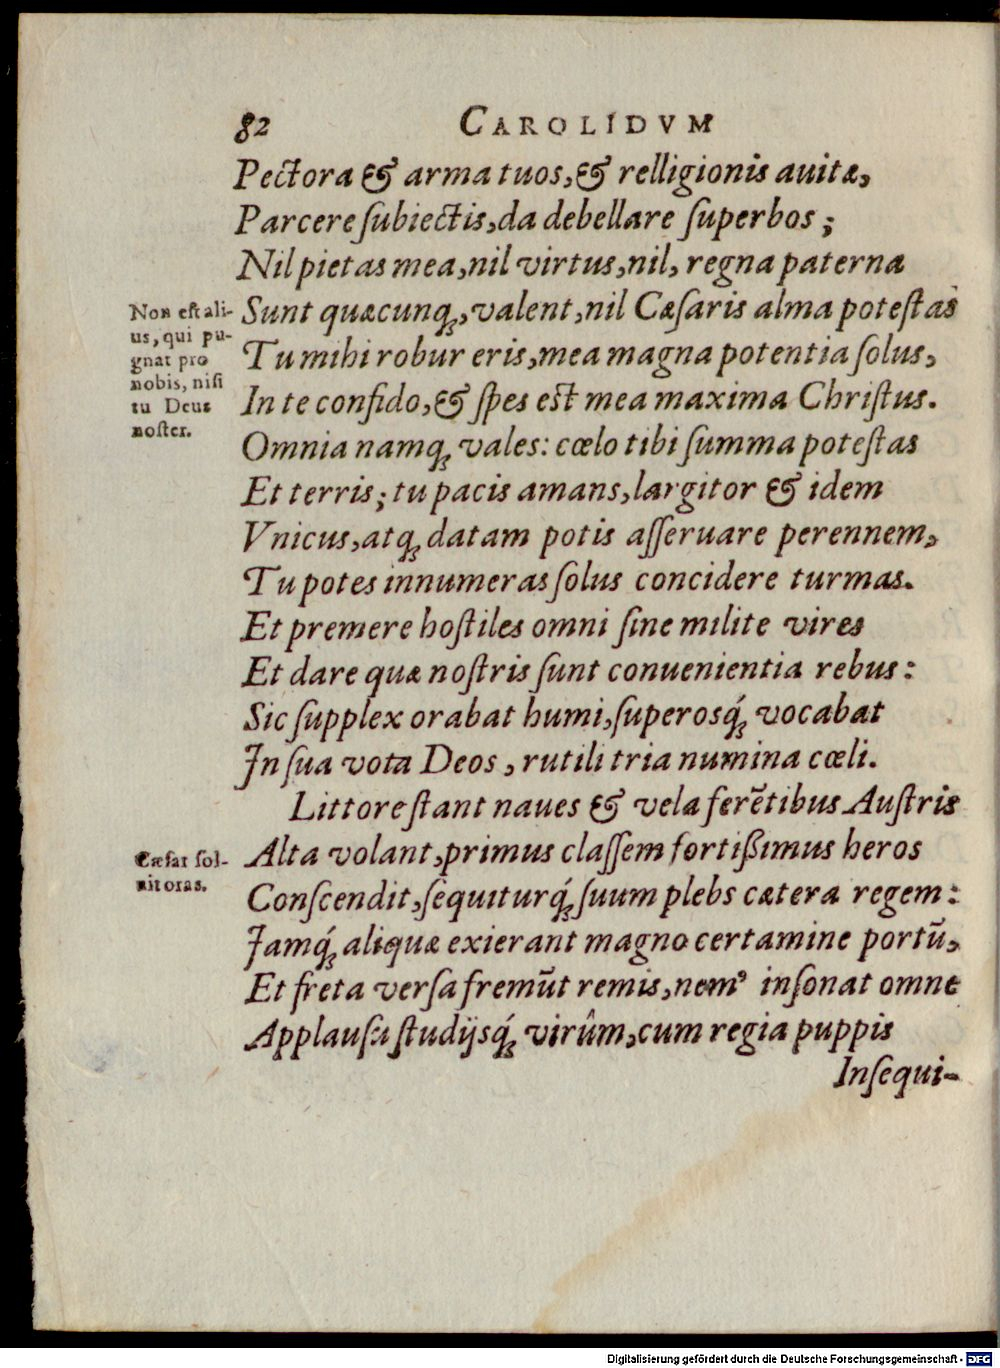 82 CAROLIDVM
Pectora & arma tuos, & relligionis auitæ,
Parcere ſubiectis, da debellare ſuperbos;
Nil pietas mea, nil virtus, nil, regna paterna
Non eſt ali-
us, qui pu-
gnat pro
nobis, niſi
tu Deus
noſter.
Sunt quæcunq́ꝫ, valent, nil Cæſaris alma poteſtas
Tu mihi robur eris, mea magna potentia ſolus,
In te confido, & ſpes eſt mea maxima Chriſtus.
Omnia namqꝫ vales: cœlo tibi ſumma poteſtas
Et terris; tu pacis amans, largitor & idem
Vnicus, atqꝫ datam potis aſſeruare perennem,
Tu potes innumeras ſolus concidere turmas.
Et premere hoſtiles omni ſine milite vires
Et dare quæ noſtris ſunt conuenientia rebus:
Sic ſupplex orabat humi, ſuperosq́ꝫ vocabat
In ſua vota Deos, rutili tria numina cœli.
Littore ſtant naues & vela ferẽtibus Auſtris
Cæſar ſol-
uit oras.
Alta volant, primus claſſem fortißimus heros
Conſcendit, ſequiturq́ꝫ ſuum plebs cætera regem:
Jamq́ꝫ aliquæ exierant magno certamine portū,
Et freta verſa fremūt remis, nemꝰ inſonat omne
Applauſu ſtudijsq́ꝫ virûm, cum regia puppis
Inſequi-
Digitalisierung gefördert durch die Deutsche Forschungsgemeinschaft - DFG